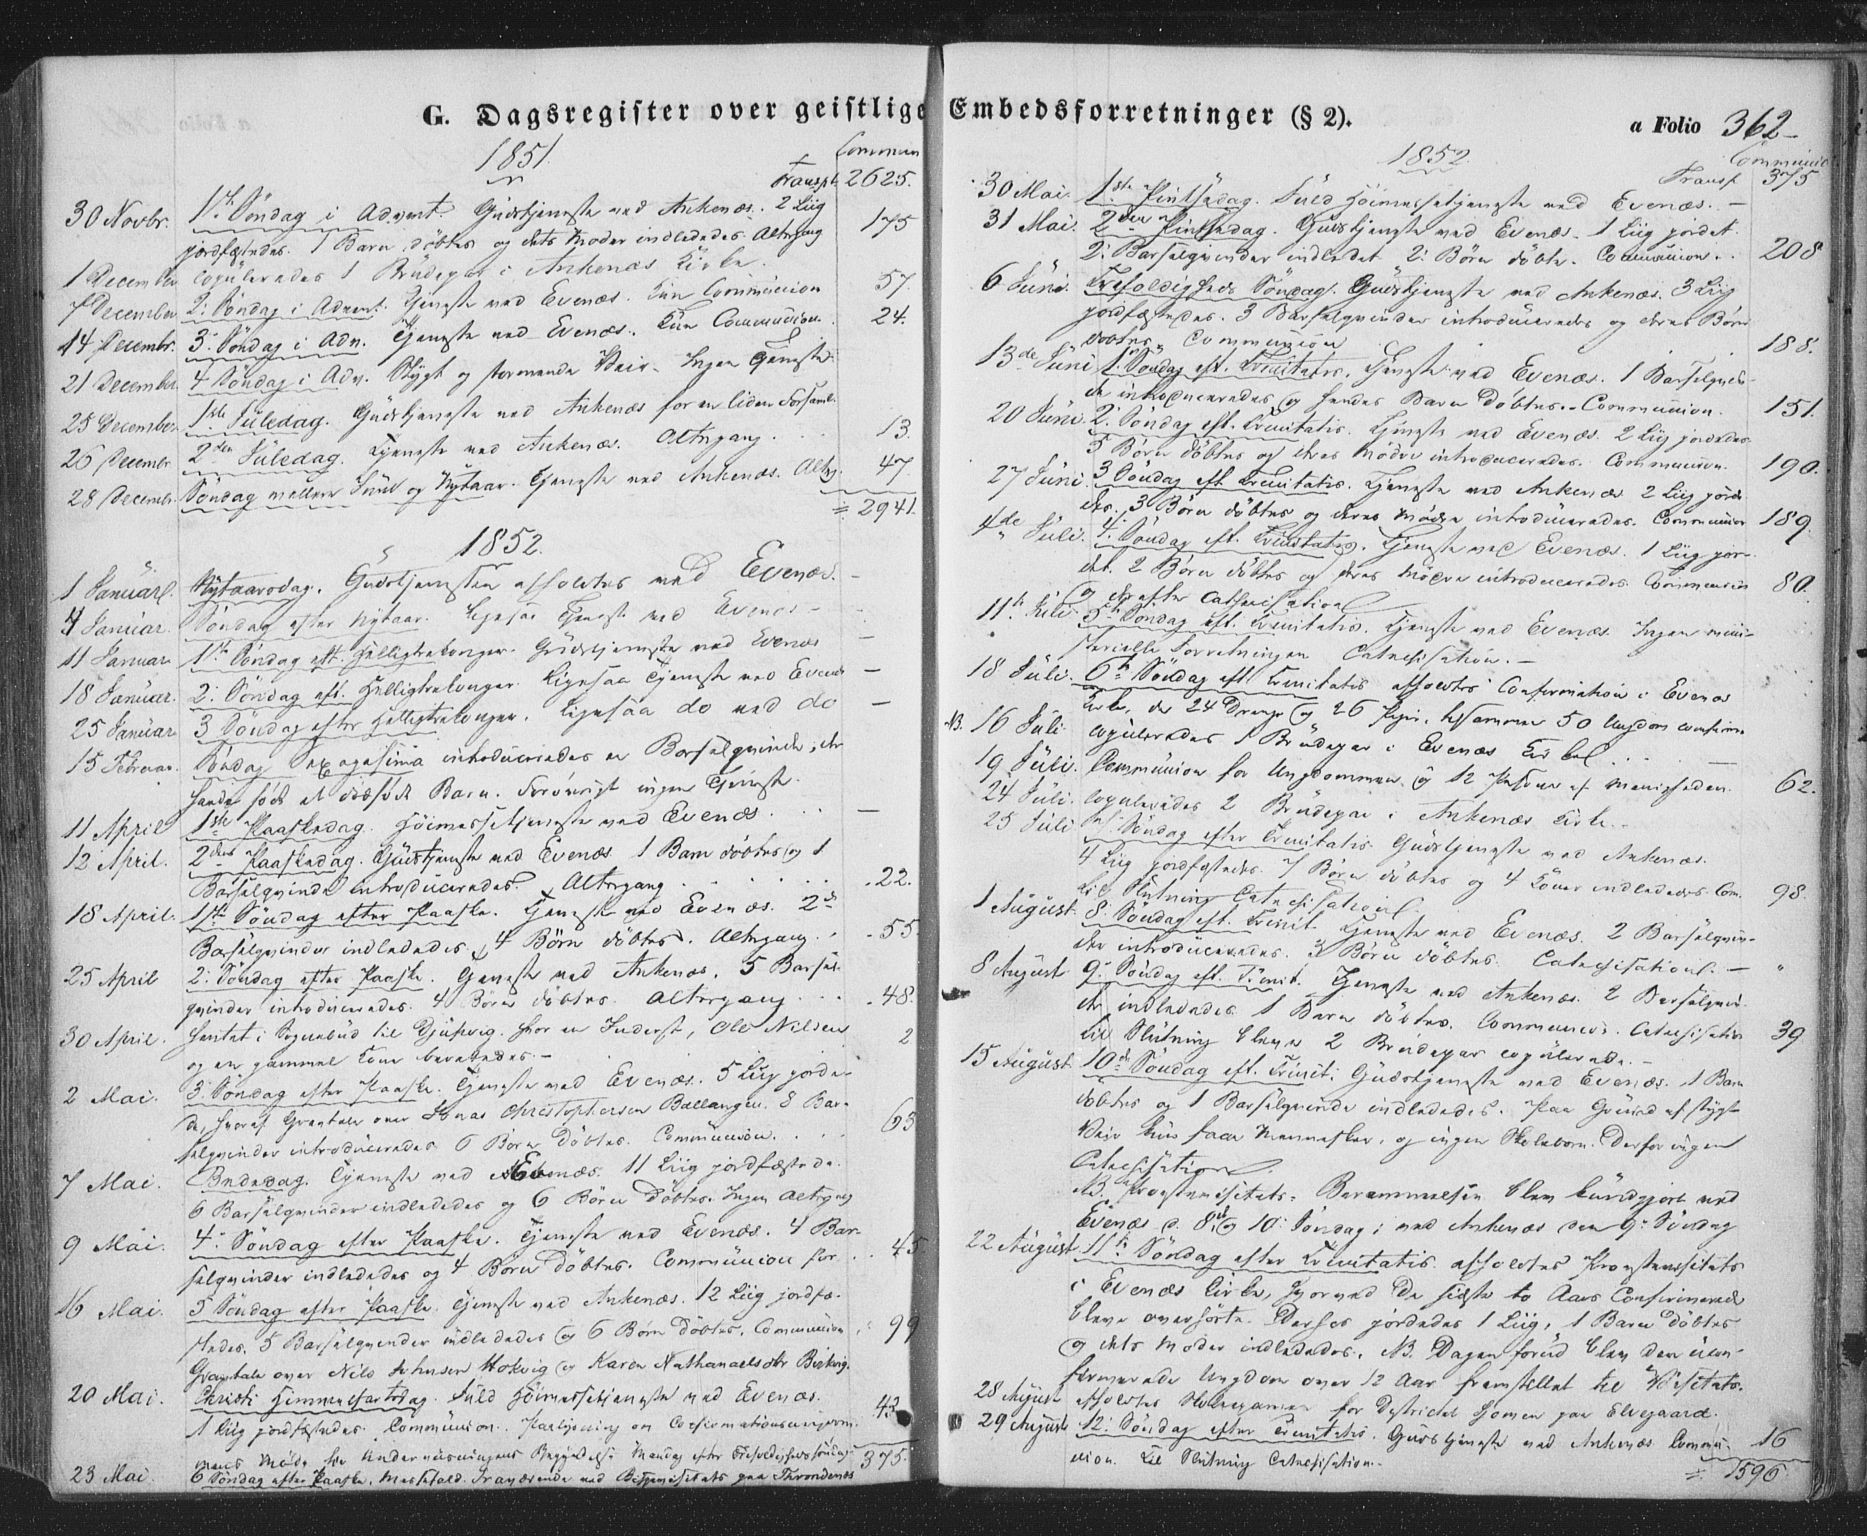 G. Dagsregister over geistlige Embedsforretninger (§ 2).
a Folio 362
1851.
Commun
Transpt. 2625.
30 Novbr. 1ste Söndag i Advent. Gudstjeneste ved Ankenæs. 2 Liig 175
jordfæstedes. 1 Barn döbtes og dets Moder indledede. Altergang
1 December copuleredes 1 Brudepar i Ankenæs Kirke.
7 December 2. Söndag i Advent. Tjeneste ved Evenæs. Communion 57.
14 Decembr. 3. Söndag i Adv. Tjeneste ved Evenæs. Communion 24.
21 December 4 Söndag i Adv. Stygt og stormende Veir. Ingen Tjeneste.
25 December 1ste Juledag. Gudstjeneste ved Ankenæs for en liden Forsaml.
26 Decembr 2den Juledag. Tjeneste ved Ankenæs. Altergang. 13.
28 Decembr. Söndag mellem Juul og Nytaar. Tjeneste ved Ankenæs. Alterg. 47
= 2941.
1852.
1 Januar. Nytaarsdag. Gudstjenesten afholdtes ved Evenæs. –
4 Januar. Söndag efter Nytaar. Ligesaa Tjeneste ved Evenæs –
11 Januar 1ste Söndag eft. Helligtrekonger. Gudstjeneste ved Evenæs –
18 Januar. 2. Söndag eft. Helligtrekonger. Ligesaa Tjeneste ved Evenæs –
25 Januar 3 Söndag efter Helligtrekonger. Ligesaa do ved do –
15 Februar. Söndag Sexagesima introduceredes en Barselqvinde, der
havde födt et Barn. Forövrigt ingen Tjeneste.
11 April 1ste Paaskedag. Höimessetjeneste ved Evenæs. –
12 April. 2den Paaskedag. Gudstjeneste ved Evenæs. 1 Barn döbtes og 1
Barselqvinde introduceredes. Altergang 22.
18 April. 1ste Söndag efter Paaske. Tjeneste ved Evenæs. 2
Barselqvinder indledede. 4 Börn döbtes. Altergang. 55
25 April 2. Söndag efter Paaske. Tjeneste ved Ankenæs. 5 Barsel-
qvinder introduceredes. 4 Börn döbtes. Altergang 48.
30 April. hentet i Sognebud til hvor en Inderst, Ole Nilsen 2
og en gammel Kone berettedes. –
2 Mai. 3. Söndag efter Paaske. Tjeneste ved Evenæs. 5 Liig jorde-
de, hvoraf Gravtale over Jonas Christophersen Ballangen. 8 Bar-
selqvinder introduceredes 6 Börn döbtes. Communion. 63
7 Mai. Bededag. Tjeneste ved Evenæs. 11 Liig jordfæstede.
6 Barselqvinder indledede og 6 Börn döbtes. Ingen Altergang
9 Mai. 4. Söndag efter Paaske. Tjeneste ved Evenæs. 4 Bar-
selqvinder indledede og 4 Börn döbtes. Communion for 45
16 Mai. 5 Söndag efter Paaske. Tjeneste ved Ankenæs. 12 Liig jordfæ-
stedes. 5 Barselqvinder indledede og 6 Börn döbtes. Communion 99
Gravtale over Nils Johnsen og Karen Nathanaelsdtr
20 Mai. Christi Himmelfartsdag. Fuld Höimessetjeneste ved Evenæs. 43
1 Liig jordfæstedes. Communion. Paalysning om
Möde for Underviisningens Begyndelse Mandag efter Trefoldigheds Söndag. 375.
23 Mai. 6 Söndag efter Paaske. Messefald. Fraværende ved Bispevisitats paa Throndenæs
1852.
Communic
Transp 375
30 Mai. 1ste Pintsedag. Fuld Höimessetjeneste ved Evenæs. –
31 Mai. 2den Pintsedag. Gudstjeneste ved Evenæs. 1 Liig jordet.
2 Barselqvinder indledet 2 Börn döbte. Communion. 208
6 Juni. Trefoldigheds Söndag. Gudstjeneste ved Ankenæs. 3 Liig
jordfæstedes. 3 Barselqvinder introduceredes og deres Börn
döbtes. Communion 188.
13de Juni 1. Söndag eft. Trinitatis. Tjeneste ved Evenæs. 1 Barselqvin-
de introduceredes og hendes Barn döbtes. Communion. 151.
20 Juni. 2. Söndag eft. Trinitatis. Tjeneste ved Evenæs. 2 Liig jordedes
5 Börn döbtes og deres Mödre introduceredes. Communion. 190.
27 Juni. 3 Söndag eft Trinitatis. Tjeneste ved Ankenæs 2 Liig jorde-
des. 3 Börn döbtes og deres Mödre introduceredes. Communion 189.
4de Juli. 4. Söndag eft. Trinitatis. Tjeneste ved Evenæs. 1 Liig jor-
det. 2 Börn döbtes og deres Mödre introduceredes. Communion 80.
og derefter Catechisation
11te Juli 5te Söndag eft. Trinitatis. Tjeneste ved Evenæs. Ingen mini-
sterielle Forretninger. Catechisation. –
18 Juli. 6te Söndag eft Trinitatis afholdtes Confirmation i Evenæs
Kirke, der 24 Drenge og 26 Piger, tilsammen 50 Ungdom confirm.
NB. 16 Juli. copuleredes 1 Brudepar i Evenæs Kirke.
19 Juli. Communion for Ungdommen og 12 Personer af Menigheden. 62.
24 Juli. copuleredes 2 Brudepar i Ankenæs Kirke.
25 Juli 7. Söndag efter Trinitatis Gudstjeneste ved Ankenæs.
4 Liig jordfæstedes. 7 Börn döbtes og 4 Koner indledede. Com. 98.
til Slutning Catechisation.
1 August. 8. Söndag eft. Trinit. Tjeneste ved Evenæs. 2 Barselqvin-
der introduceredes. 3 Börn döbtes. Catechisation. – "
8 August 9. Söndag eft. Trinit. Tjeneste ved Ankenæs. 2 Barselqvin-
der indledede. 1 Barn döbtes. Communion. Catechisation 39
til Slutning bleve 2 Brudepar copulerede. –
15 August. 10de Söndag eft. Trinit. Gudstjeneste ved Evenæs. 1 Barn
döbtes og 1 Barselqvinde indledede. Paa Grund af stygt
Veir kun faae Mennesker, og ingen Skolebörn. Derfor ingen
Catechisation.
NB. Provstevisitats-Berammelsen blev kundgjort ved
Evenæs d. 8. og 10. Söndag; ved Ankenæs den 9. Söndag
22 August 11te Söndag efter Trinitatis afholdtes Provstevisitats
i Evenæs Kirke, hvorved de sidste to Aars Confirmerede
bleve overhörte. Derhos jordedes 1 Liig, 1 Barn döbtes
og dets Moder indledede. NB. Dagen forud blev den ucon-
firmerede Ungdom over 12 Aar fremstillet til Visitats.
28 August afholdtes Skoleexamen for Districtet paa Elvegaard.
29 August 12. Söndag efter Trinitatis. Gudstjeneste ved Ankenæs Commu- 16
nion. Til Slutning Catechisation.
= 1596